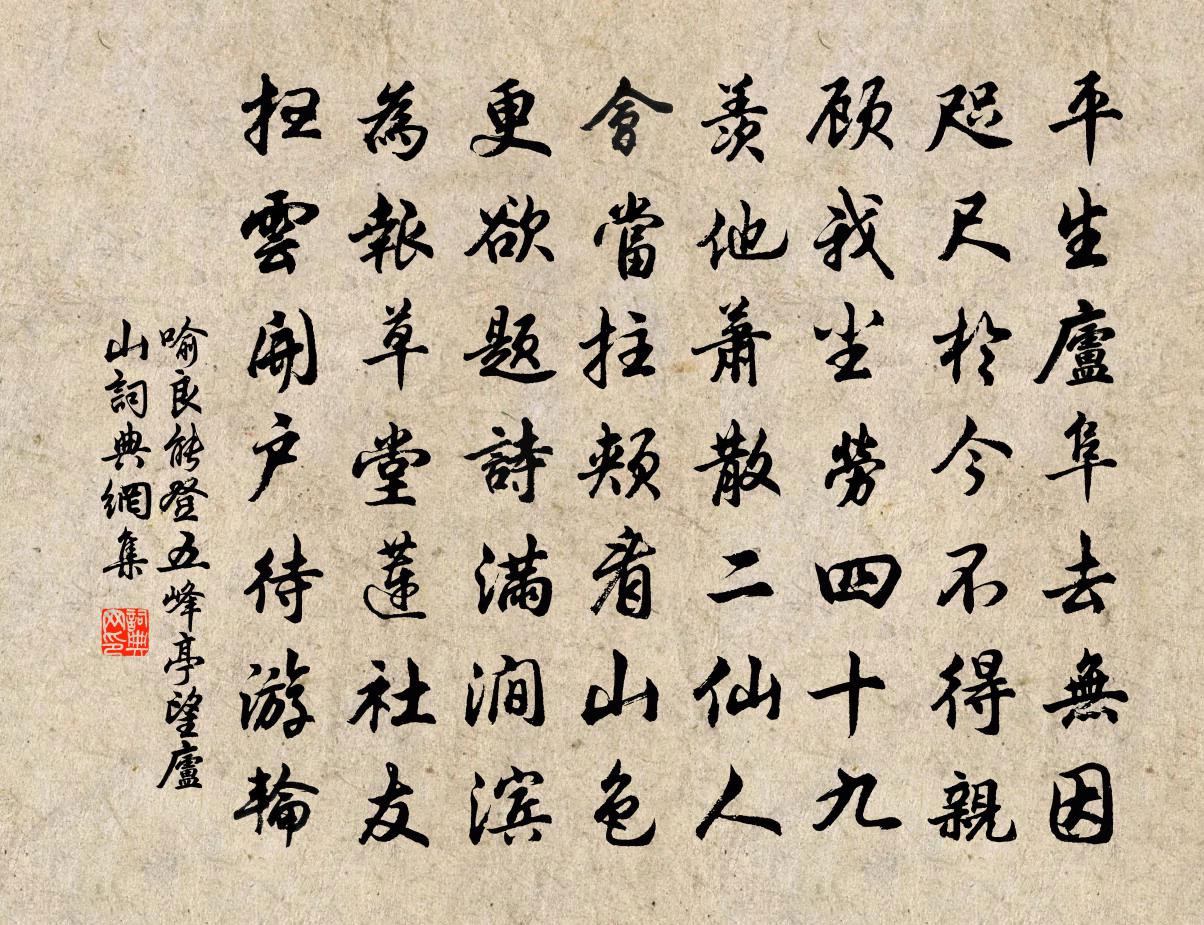 平生廬阜去無因
咫尺於今不得親
顧我坐勞四十九
羨他蕭散二仙人
會當拄頰看山色
更欲題詩滿澗滨
為報草堂蓮社友
抂雲開户待游輪
喻良能登五峰亭望廬
山詞典網集
詞典
网印